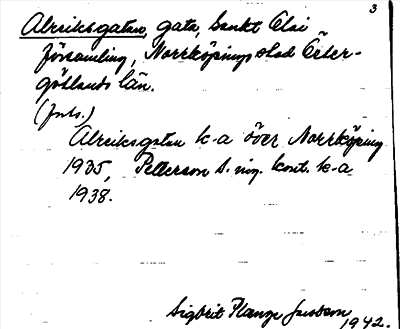 3
Alreiksgatan, gata, Sankt Olai
församling, Norrköpings stad Öster-
götlands län.
(fnts.)
Alreiksgatan k-a över Norrköping
1935, Petterson s. ing. kont. k-a
1938.
Sigbrit Plange Jansson
1942.